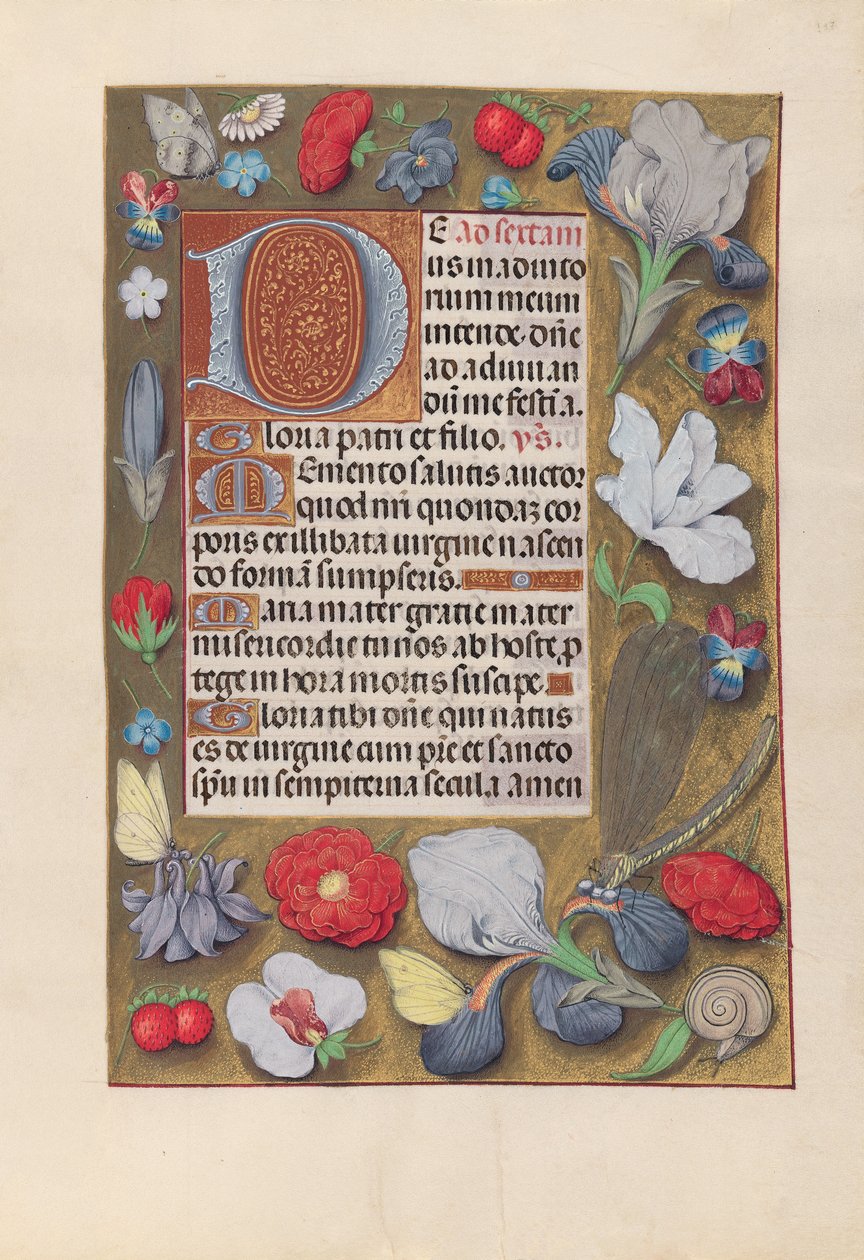 147
DE Ad sextam
us in adiuto
rium meum
intende. dñe
ad adiuuan
dũ me festĩa.
Gloria patri et filio. vs̃.
Memento salutis auctor
quod nr̃i quondaʒ cor
poris ex illibata uirgine nascen
do formã sumpseris.
Maria mater gratie mater
misericordie tu nos ab hoste ꝓ
tege in hora mortis suscipe.
Gloria tibi dñe qui natus
es de uirgine cum pr̃e et sancto
sp̃u in sempiterna secula amen